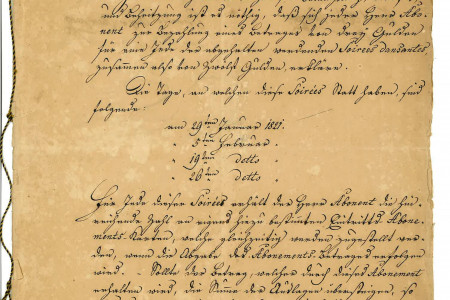 und Beheitzung ist es nöthig, daß sich jeder Herr Abo-
nent zur Bezahlung eines Betrages von drey Gulden
für eine jede der abzuhalten werdenden Soirées dansantes
zusammen also von zwölf Gulden, erkläre.
Die Tage, an welchen diese Soirées Statt haben, sind
folgende:
am 29ten Januar 1821.
" 5ten Februar.
" 19ten detto
" 26ten detto
Für jede dieser Soirées erhält der Herr Abonent die hin-
reichende Zahl an eigens hiezu bestimmten Eintritts Abone-
ments-Karten, welche gleichzeitig werden zugestellt wer-
den, wenn die Abgabe des Abonements-Betrages erfolgen
wird. - Sollte der Betrag, welcher durch dieses Abonement
erhalten wird, die Summe der Auslagen übersteigen, so